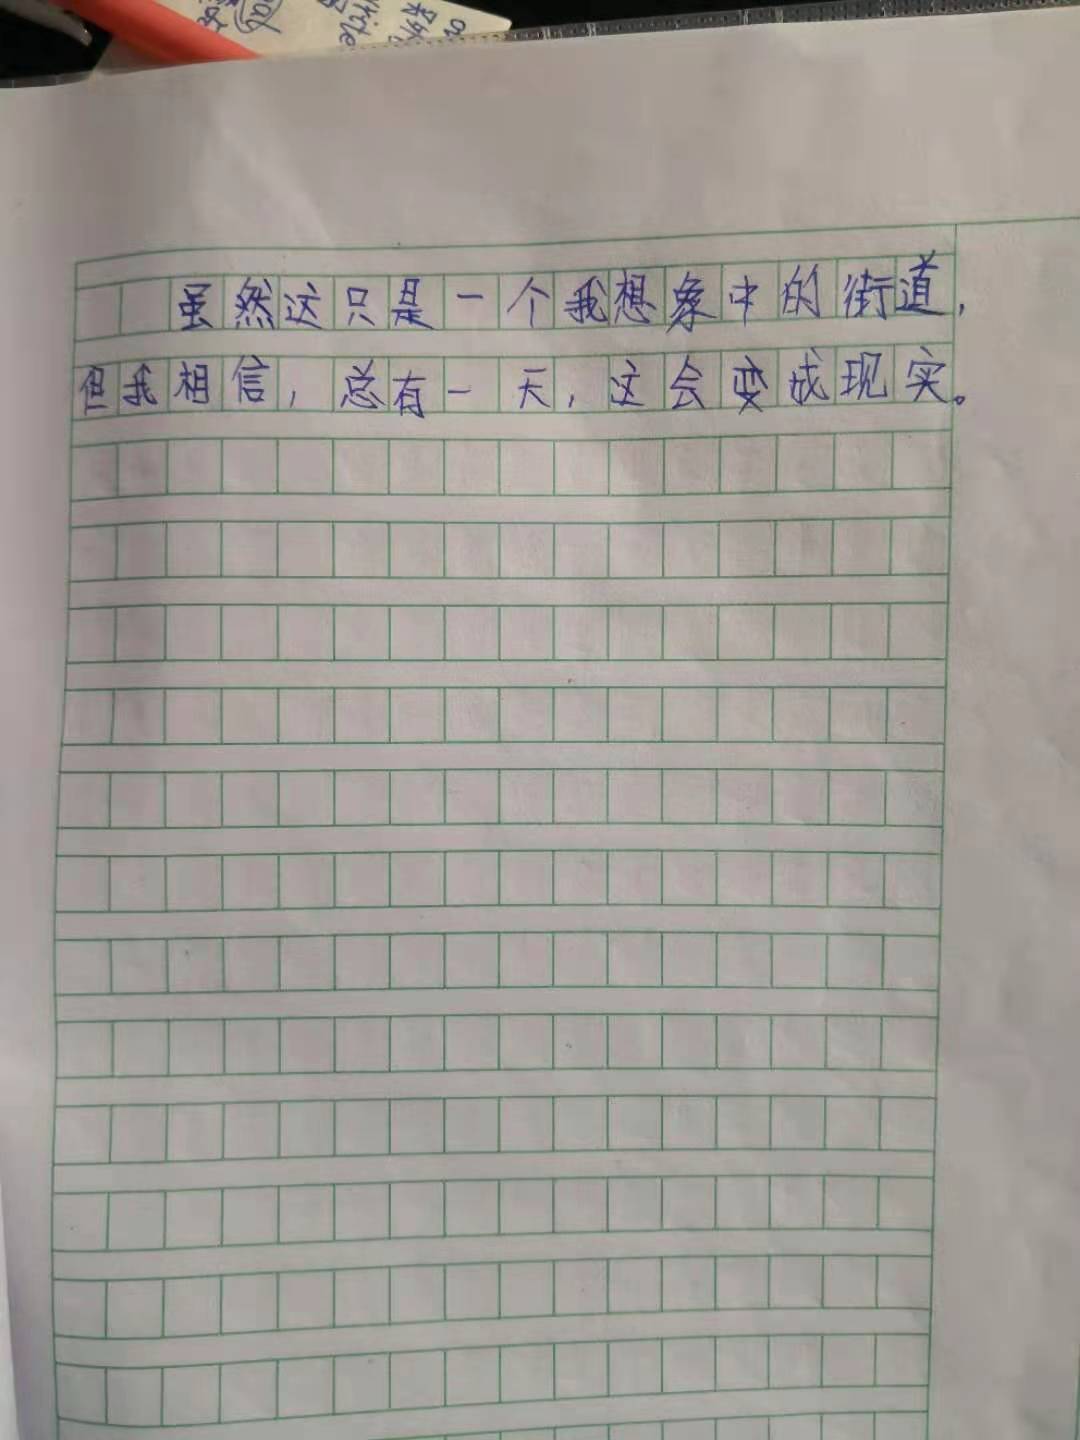 虽然这只是一个我想象中的街道，
但我相信，总有一天，这会变成现实。